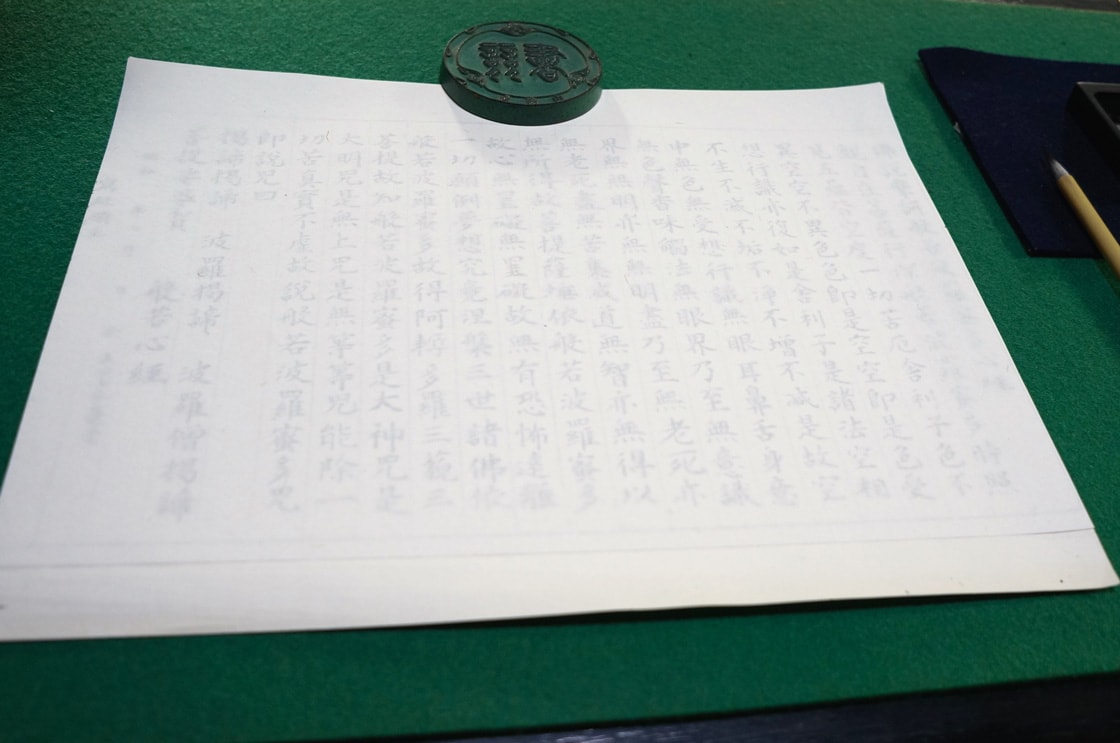 時照
見五蘊皆空度一切苦厄舍利子色不
異空空不異色色即是空空即是色受
想行識亦復如是舍利子是諸法空相
不生不滅不垢不淨不増不減是故空
中無色無受想行識無眼耳鼻舌身意
無色聲香味觸法無眼界乃至無意識
界無無明亦無無明盡乃至無老死亦
無老死盡無苦集滅道無智亦無得以
無所得故菩提薩埵依般若波羅蜜多
故心無罣礙無罣礙故無有恐怖遠離
一切顛倒夢想究竟涅槃三世諸佛依
般若波羅蜜多故得阿耨多羅三藐三
菩提故知般若波羅蜜多是大神咒是
大明咒是無上咒是無等等咒能除一
切苦真實不虚故説般若波羅蜜多咒
即説咒曰
揭諦揭諦 波羅揭諦 波羅僧揭諦
菩提薩婆訶 般若心経